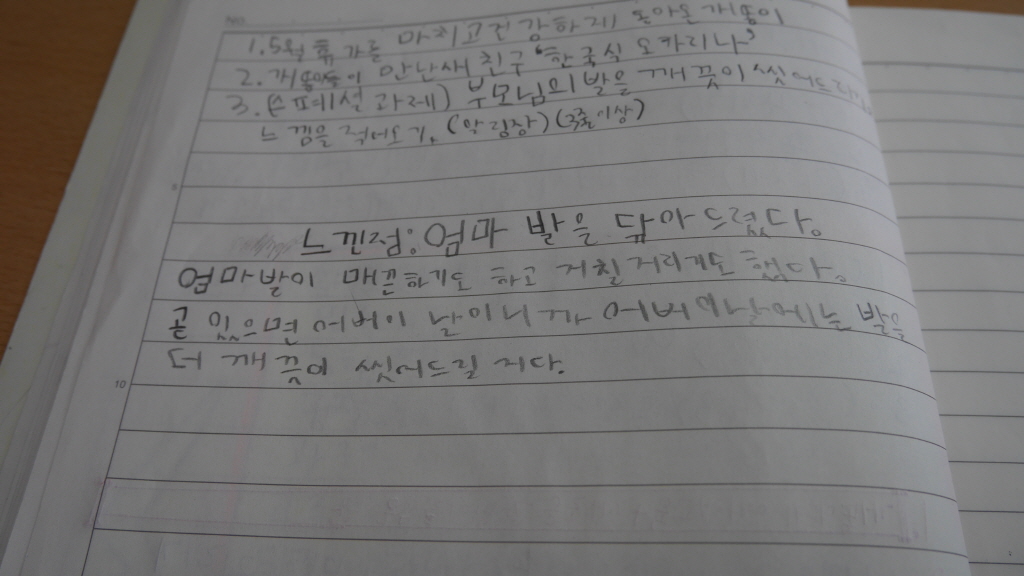 NO.
1. 5월 휴가를 마치고 건강하게 돌아올 개똥이
2. 개똥이들이 만난 새 친구 '한국식 오카리나'
3. (스페셜 과제) 부모님의 발을 깨끗이 씻어드리고
느낌을 적어오기. (알림장) (3줄이상)
5
느낀점: 엄마 발을 닦아 드렸다.
엄마발이 매끈하기도 하고 거칠거리기도 했다.
곧 있으면 어버이 날이니까 어버이날에는 발을
더 깨끗이 씻어드릴 거다.
10